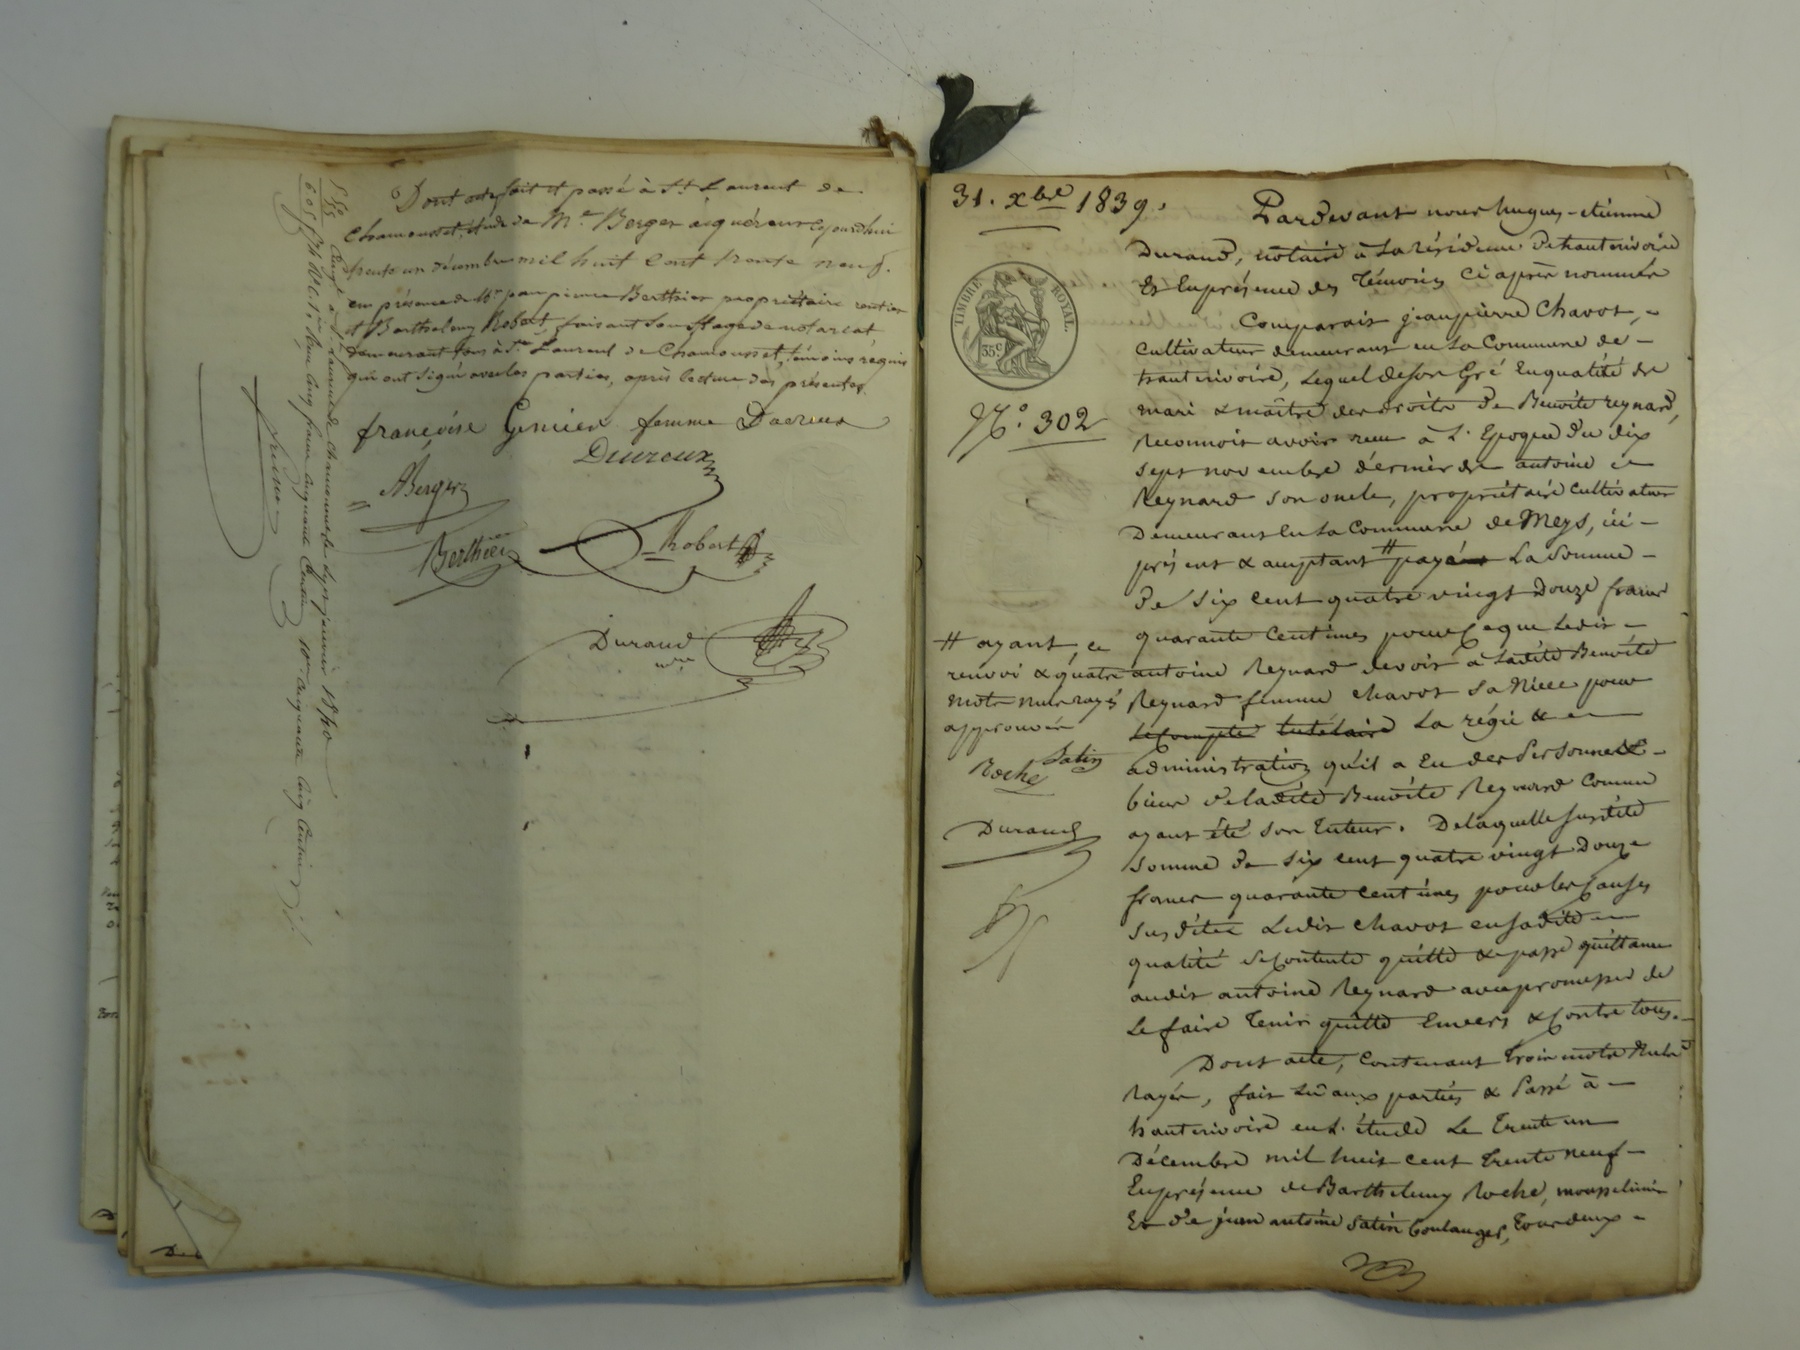 Dont acte, fait et passé à St. Laurent de
Chamousset, étude de Me. Berger acquéreur cejourdhui
trente un décembre mil huit cent trente neuf.
en présence de Mr. jean pierre Berthier propriétaire rentier
et Barthelemy Robert faisant son stage de notariat
demeurant tous à St. Laurent de Chamousset, témoins requis
qui ont signé avec les parties, après lecture des présentes.
françoise femme Ducreux
Ducreux
ABerger
Berthier
Robert
Durand
nre
Enregé à St. Laurent de Chamousset le janvier 1840
31. xbre 1839.
TIMBRE ROYAL.
35c
No. 302
# ayant, ce
renvoi & quatre
mots nuls rayés
approuvés
Satin
Roche
Durand
Pardevant nous hugues-etienne
Durand, notaire à la résidence dehauterivoire
Et Enprésence des Témoins Ci après nommés
Comparait jeanpierre Chavot, -
Cultivateur demeurant en la Commune de -
hauterivoire, Lequel deson Gré Enqualité de
mari & maître des droits de Benoite reynard,
Reconnoit avoir reçu à L'Epoque du dix
sept novembre dernier de antoine
Reynard son oncle, propriétaire cultivateur
Demeurant en la Commune de Meys, ici -
présent & acceptant # payé La Somme -
De Six cent quatre vingt Douze francs
quarante Centimes pour Ceque Ledit -
antoine Reynard devoit à Ladite Benoite
Reynard femme Chavot Sa Niece pour
Lecompte tutélaire La régie & -
administration qu'il a Eu des Personne &
biens deladite Benoite Reynard Comme
ayant été son Tuteur. Delaquelle Susdite
Somme de Six cent quatre vingt Douze
francs quarante centimes pour les Causes
Susdites Ledit Chavot ensadite -
qualité seContente quitte & passe quittance
audit antoine Reynard avec promesse de
Le faire Tenir quitte Envers & Contre tous. -
Dont acte, Contenant Trois mots Nuls
Rayés, fait Lu aux parties & Passé à -
hauterivoire en L'étude Le Trente un
Décembre mil huit cent Trente neuf -
Enprésence de Barthelemy Roche, mousselinier
Et De jean antoine Satin boulanger, Tous deux -